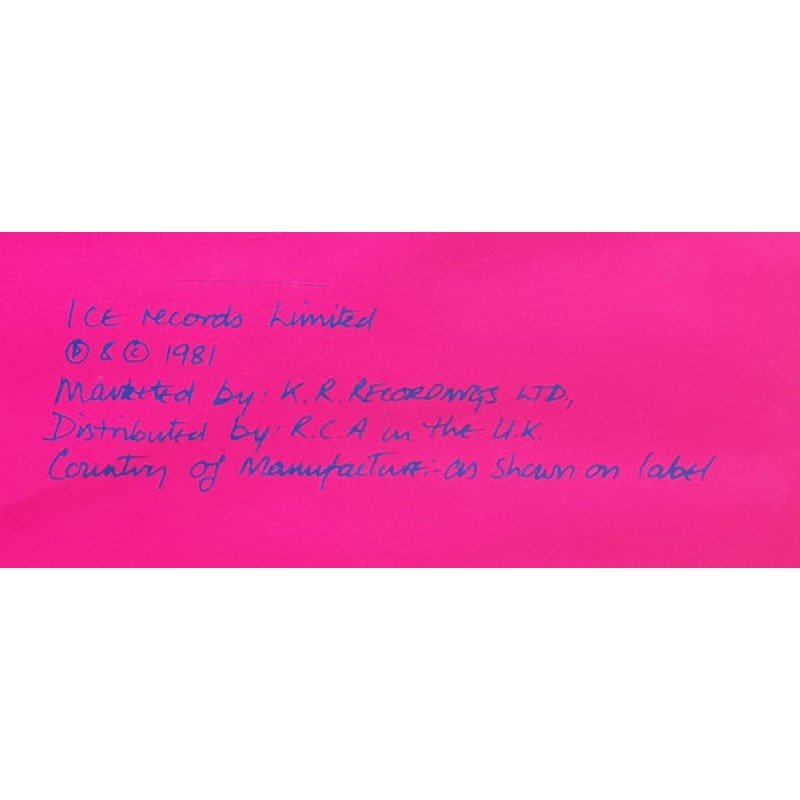 ICE records Limited
Ⓟ & © 1981
Marketed by: K.R. RECORDINGS LTD.,
Distributed by: R.C.A in the U.K.
Country of Manufacture:- as shown on label